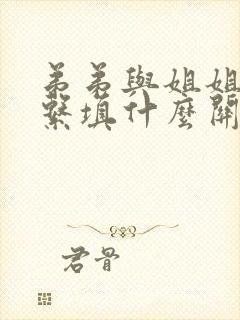 弟弟與姐姐
繫填什麼關
君骨